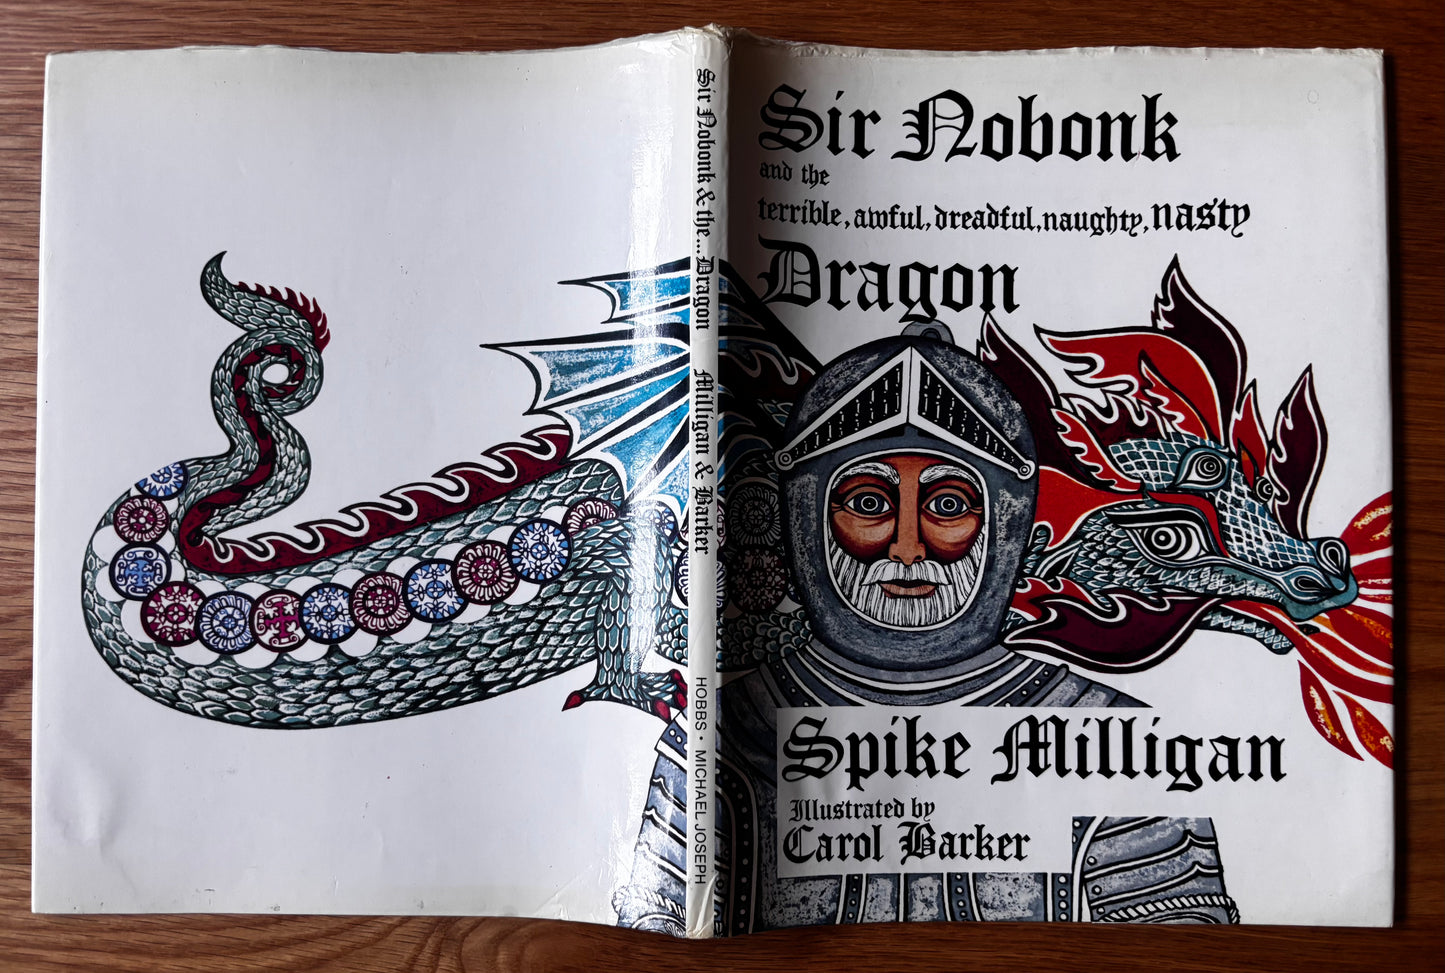 Sir Nobonk & the... Dragon Milligan & Barker HOBBS · MICHAEL JOSEPH
Sir Nobonk
and the
terrible, awful, dreadful, naughty, nasty
Dragon
Spike Milligan
Illustrated by
Carol Barker